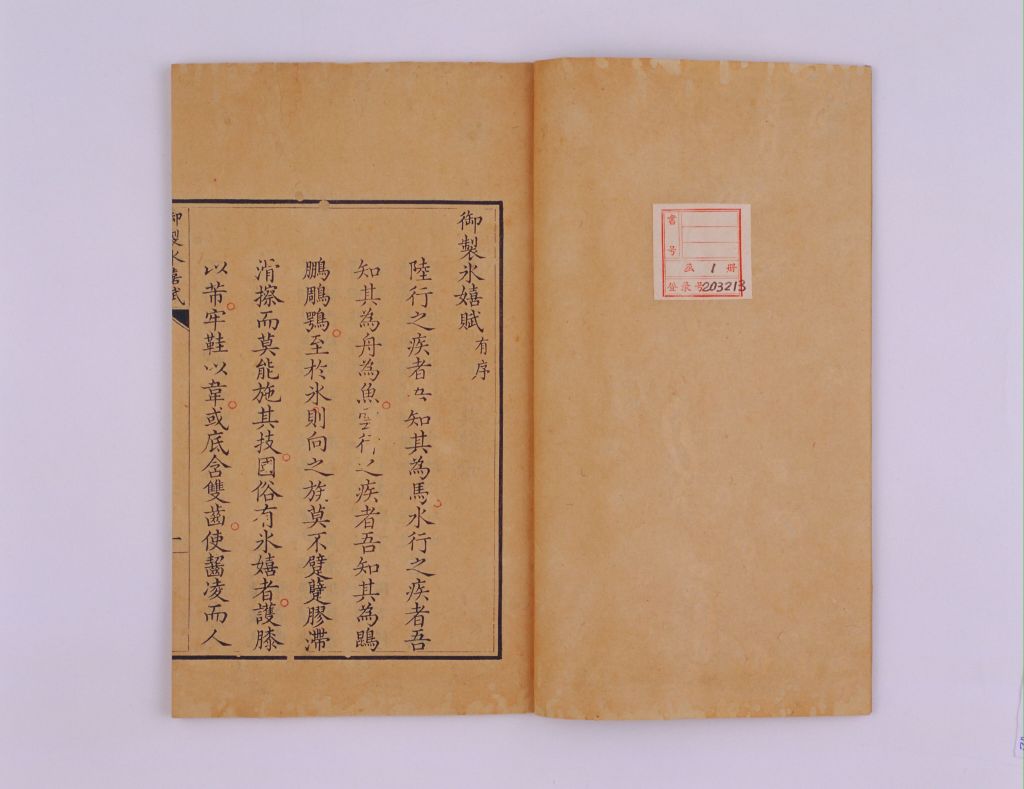 書號
函 1 册
登录号 203213
御製冰嬉賦 有序
陸行之疾者吾知其為馬水行之疾者吾
知其為舟為魚雲行之疾者吾知其為鵾
鵬鵰鶚至於氷則向之族莫不躄躠膠滯
滑擦而莫能施其技國俗有氷嬉者護膝
以芾牢鞋以韋或底含雙齒使齧凌而人
御製冰嬉賦
一